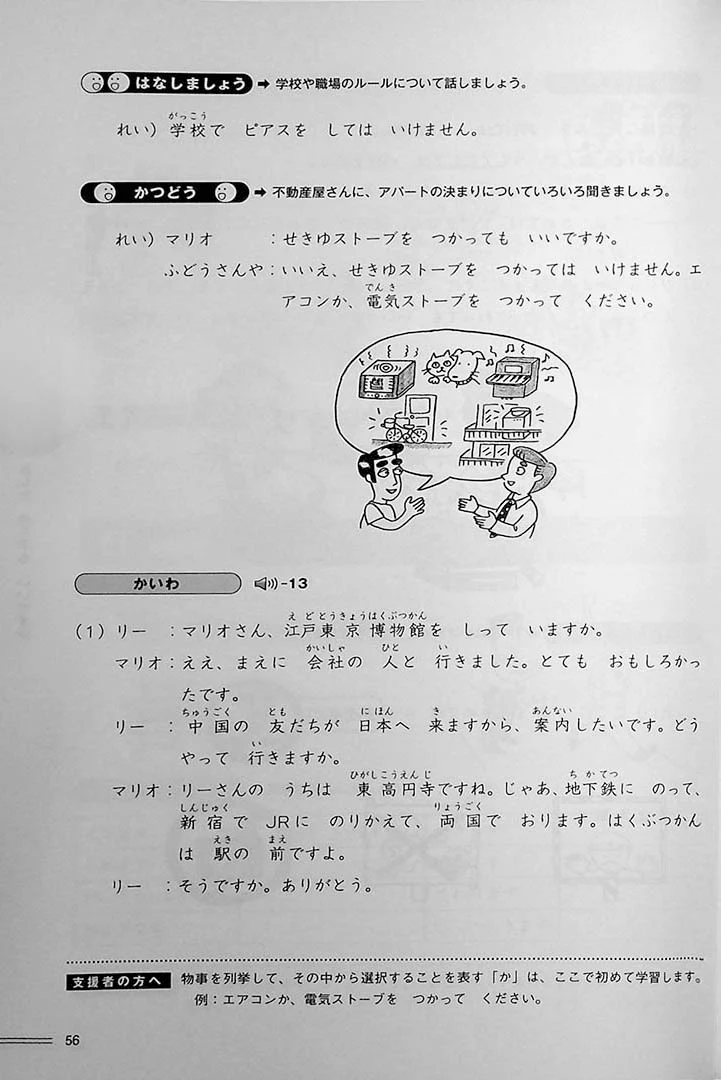 はなしましょう ➡ 学校や職場のルールについて話しましょう。
れい）学校で　ピアスを　しては　いけません。
かつどう ➡ 不動産屋さんに、アパートの決まりについていろいろ聞きましょう。
れい）マリオ　　　：せきゆストーブを　つかっても　いいですか。
ふどうさんや：いいえ、せきゆストーブを　つかっては　いけません。エ
アコンか、電気ストーブを　つかって　ください。
かいわ 13
（1）リー　：マリオさん、江戸東京博物館を　しって　いますか。
マリオ：ええ、まえに　会社の　人と　行きました。とても　おもしろかっ
たです。
リー　：中国の　友だちが　日本へ　来ますから、案内したいです。どう
やって　行きますか。
マリオ：リーさんの　うちは　東高円寺ですね。じゃあ、地下鉄に　のって、
新宿で　JRに　のりかえて、両国で　おります。はくぶつかん
は　駅の　前ですよ。
リー　：そうですか。ありがとう。
支援者の方へ　物事を列挙して、その中から選択することを表す「か」は、ここで初めて学習します。
例：エアコンか、電気ストーブを　つかって　ください。
56